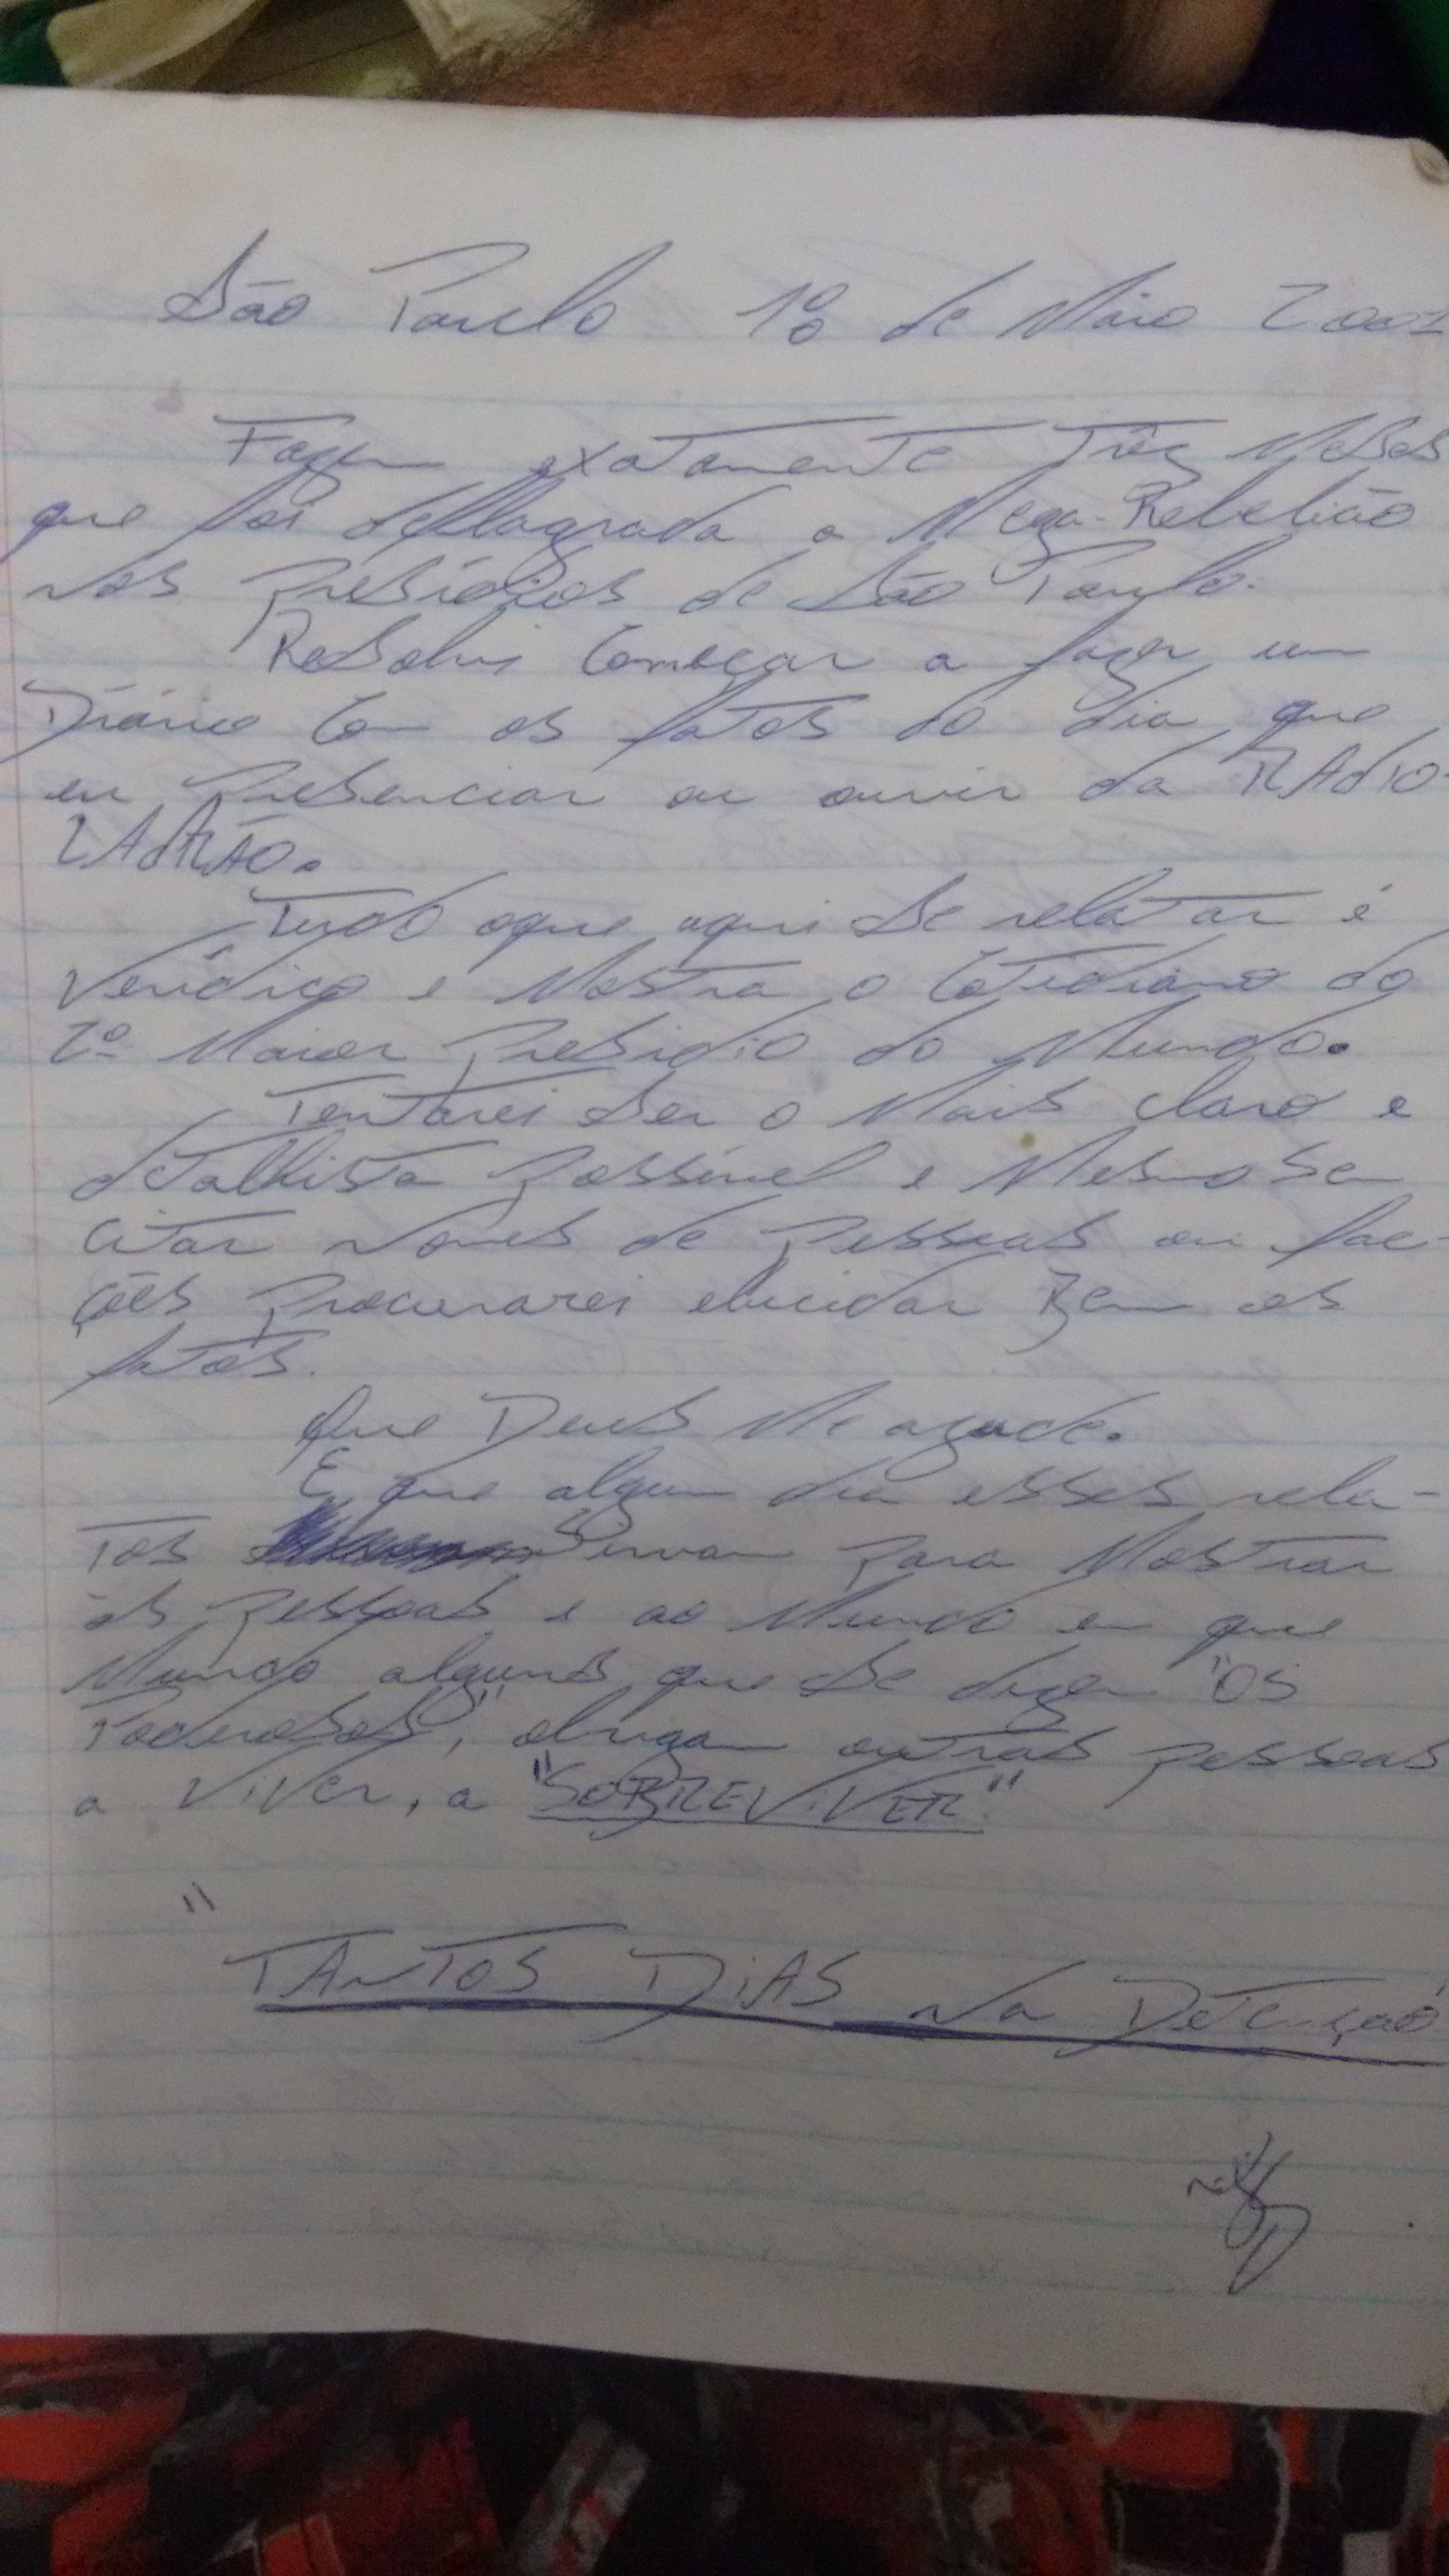 São Paulo 1º de Maio 2001
Fazem exatamente três Meses
que foi deflagrada a Mega-Rebelião
nos presídios de São Paulo.
Resolvi Começar a fazer um
Diário Com os fatos do dia que
eu presenciar ou ouvir da RAdIO
LAdRÃO.
Tudo oque aqui se relatar é
verídico e Mostra o Cotidiano do
2º Maior presidio do Mundo.
Tentarei ser o Mais claro e
detalhista possível e Mesmo sem
citar nomes de pessoas ou fac-
ções procurarei elucidar Bem os
fatos.
Que Deus Me ajude.
E que algum dia esses rela-
tos Sirvam para Mostrar
às pessoas e ao Mundo em que
Mundo alguns que se dizem "OS
Poderosos", obrigam outras pessoas
a viver, a "SOBREViVER."
"
TANTOS DiAS na Detenção